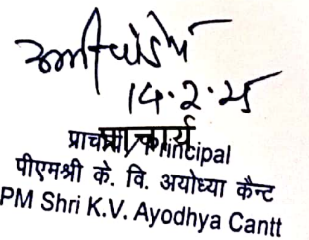 14.2.25
प्राचार्य
प्राचार्य / Principal
पीएमश्री के. वि. अयोध्या कैन्ट
PM Shri K.V. Ayodhya Cantt